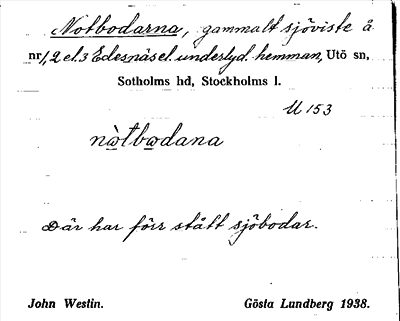 Notbodarna, gammalt sjöviste å
nr 1, 2 el. 3 Edesnäs el. underlyd. hemman, Utö sn,
Sotholms hd, Stockholms l.
U 153
nɷ̀tbɷdana
Där har förr stått sjöbodar.
John Westin. Gösta Lundberg 1938.